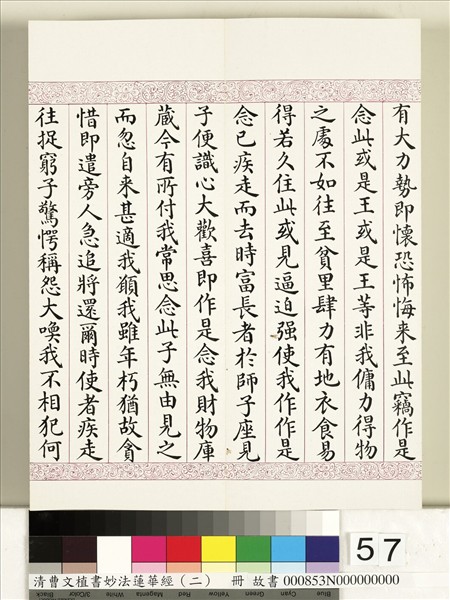 有大力勢即懷恐怖悔来至此竊作是
念此或是王或是王等非我傭力得物
之處不如往至貧里肆力有地衣食易
得若久住此或見逼迫强使我作作是
念已疾走而去時富長者於師子座見
子便識心大歡喜即作是念我財物庫
藏今有所付我常思念此子無由見之
而忽自来甚適我願我雖年朽猶故貪
惜即遣旁人急追將還爾時使者疾走
往捉窮子驚愕稱怨大喚我不相犯何
57
清曹文植書妙法蓮華經（二） 冊 故書 000853N000000000
Black 3/Color White Magenta Red Yellow Green Cyan Blue